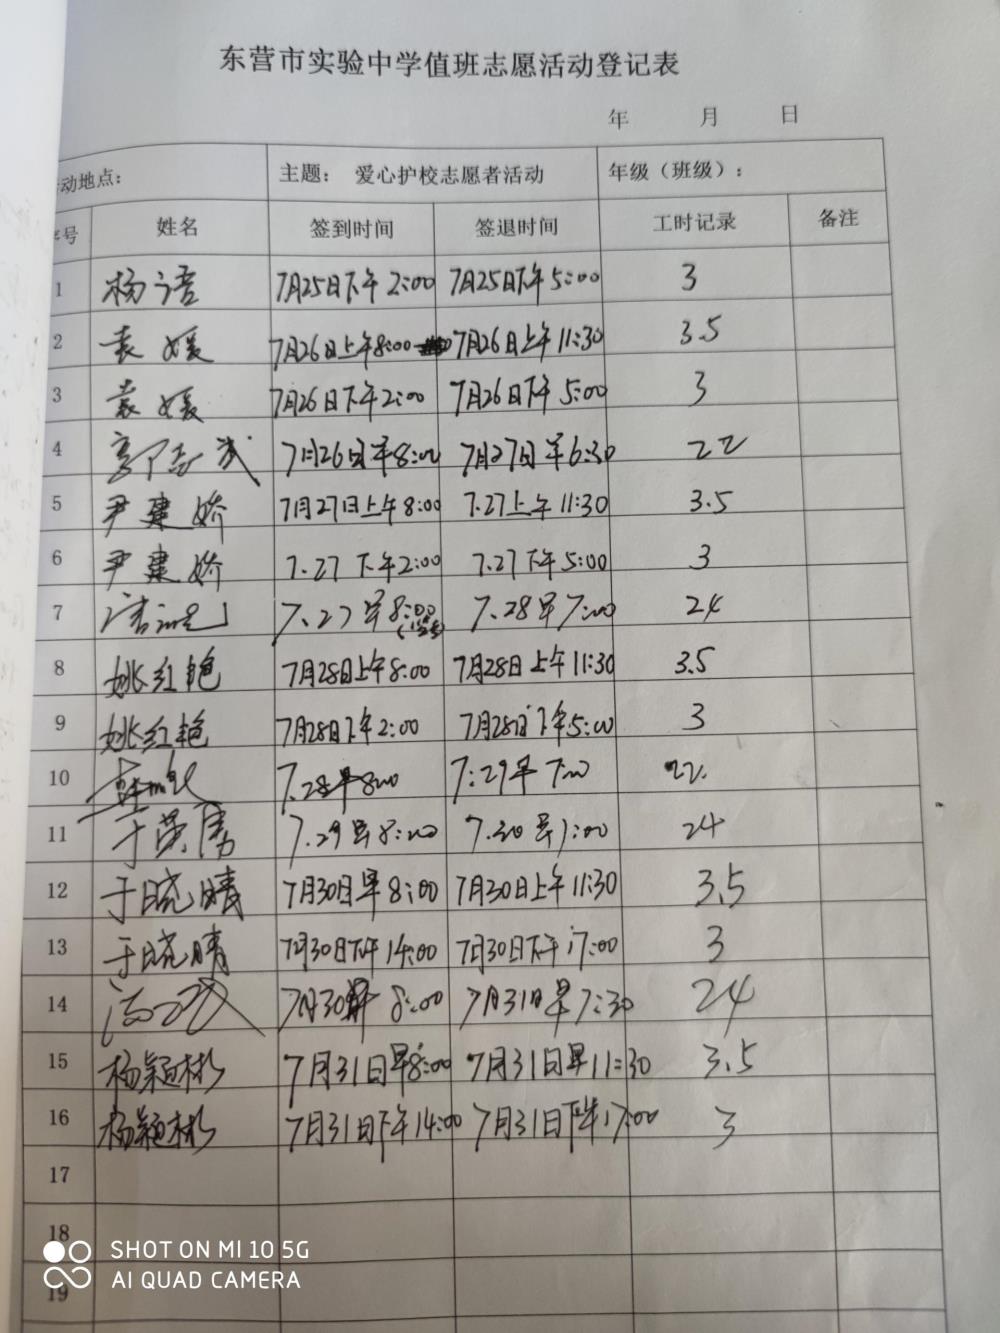 东营市实验中学值班志愿活动登记表
年 月 日
动地点： 主题： 爱心护校志愿者活动 年级（班级）：
号 姓名 签到时间 签退时间 工时记录 备注
1 杨语 7月25日下午2:00 7月25日下午5:00 3
2 袁媛 7月26日上午8:00 7月26日上午11:30 3.5
3 袁媛 7月26日下午2:00 7月26日下午5:00 3
4 7月26日早8:00 7月27日早6:30 22
5 尹建娇 7月27日上午8:00 7.27上午11:30 3.5
6 尹建娇 7.27下午2:00 7.27下午5:00 3
7 7.27早8:00 7.28早7:00 24
8 姚红艳 7月28日上午8:00 7月28日上午11:30 3.5
9 姚红艳 7月28日下午2:00 7月28日下午5:00 3
10 7.28早8:00 7.29早7:00 22.
11 于英勇 7.29早8:00 7.30早7:00 24
12 于晓晴 7月30日早8:00 7月30日上午11:30 3.5
13 于晓晴 7月30日下午14:00 7月30日下午17:00 3
14 7月30早8:00 7月31日早7:30 24
15 杨颖彬 7月31日早8:00 7月31日早11:30 3.5
16 杨颖彬 7月31日下午14:00 7月31日下午17:00 3
17
18
19
SHOT ON MI 10 5G
AI QUAD CAMERA